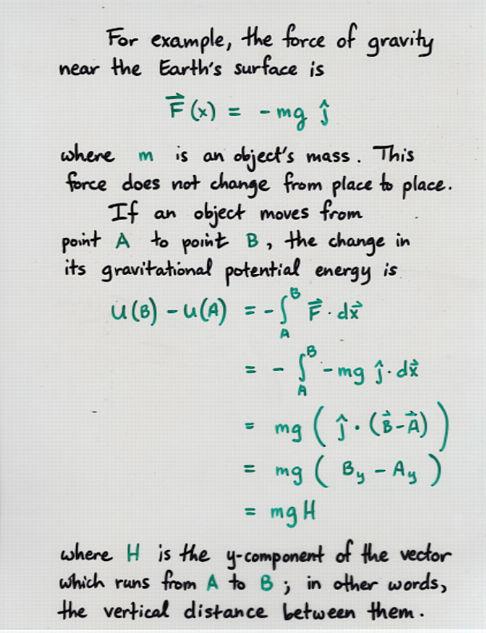 For example, the force of gravity
near the Earth's surface is
F⃗(x) = -mg ĵ
where m is an object's mass. This
force does not change from place to place.
If an object moves from
point A to point B, the change in
its gravitational potential energy is
U(B) - U(A) = -∫_A^B F⃗ · dx⃗
= - ∫_A^B -mg ĵ · dx⃗
= mg ( ĵ · (B⃗ - A⃗) )
= mg ( B_y - A_y )
= mg H
where H is the y-component of the vector
which runs from A to B ; in other words,
the vertical distance between them.